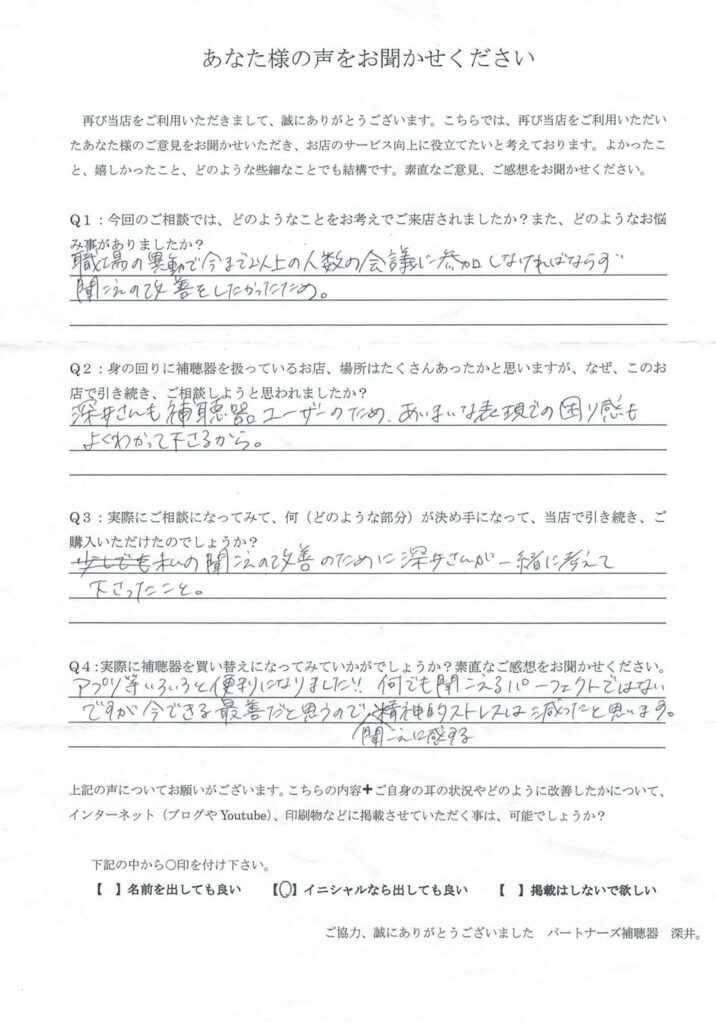 あなた様の声をお聞かせください
再び当店をご利用いただきまして、誠にありがとうございます。こちらでは、再び当店をご利用いただい
たあなた様のご意見をお聞かせいただき、お店のサービス向上に役立てたいと考えております。よかったこ
と、嬉しかったこと、どのような些細なことでも結構です。素直なご意見、ご感想をお聞かせください。
Q1：今回のご相談では、どのようなことをお考えでご来店されましたか？また、どのようなお悩
み事がありましたか？
職場の異動で今まで以上の人数の会議に参加しなければならず
聞こえの改善をしたかったため。
Q2：身の回りに補聴器を扱っているお店、場所はたくさんあったかと思いますが、なぜ、このお
店で引き続き、ご相談しようと思われましたか？
深井さんも補聴器ユーザーのため、あいまいな表現での困り感も
よくわかって下さるから。
Q3：実際にご相談になってみて、何（どのような部分）が決め手になって、当店で引き続き、ご
購入いただけたのでしょうか？
少しでも私の聞こえの改善のために深井さんが一緒に考えて
下さったこと。
Q4：実際に補聴器を買い替えになってみていかがでしょうか？素直なご感想をお聞かせください。
アプリ等いろいろと便利になりました!! 何でも聞こえるパーフェクトではない
ですが今できる最善だと思うので、精神的ストレスは減ったと思います。
聞こえに感する
上記の声についてお願いがございます。こちらの内容＋ご自身の耳の状況やどのように改善したかについて、
インターネット（ブログやYoutube）、印刷物などに掲載させていただく事は、可能でしょうか？
下記の中から〇印を付け下さい。
【 】名前を出しても良い 【〇】イニシャルなら出しても良い 【 】掲載はしないで欲しい
ご協力、誠にありがとうございました パートナーズ補聴器 深井。